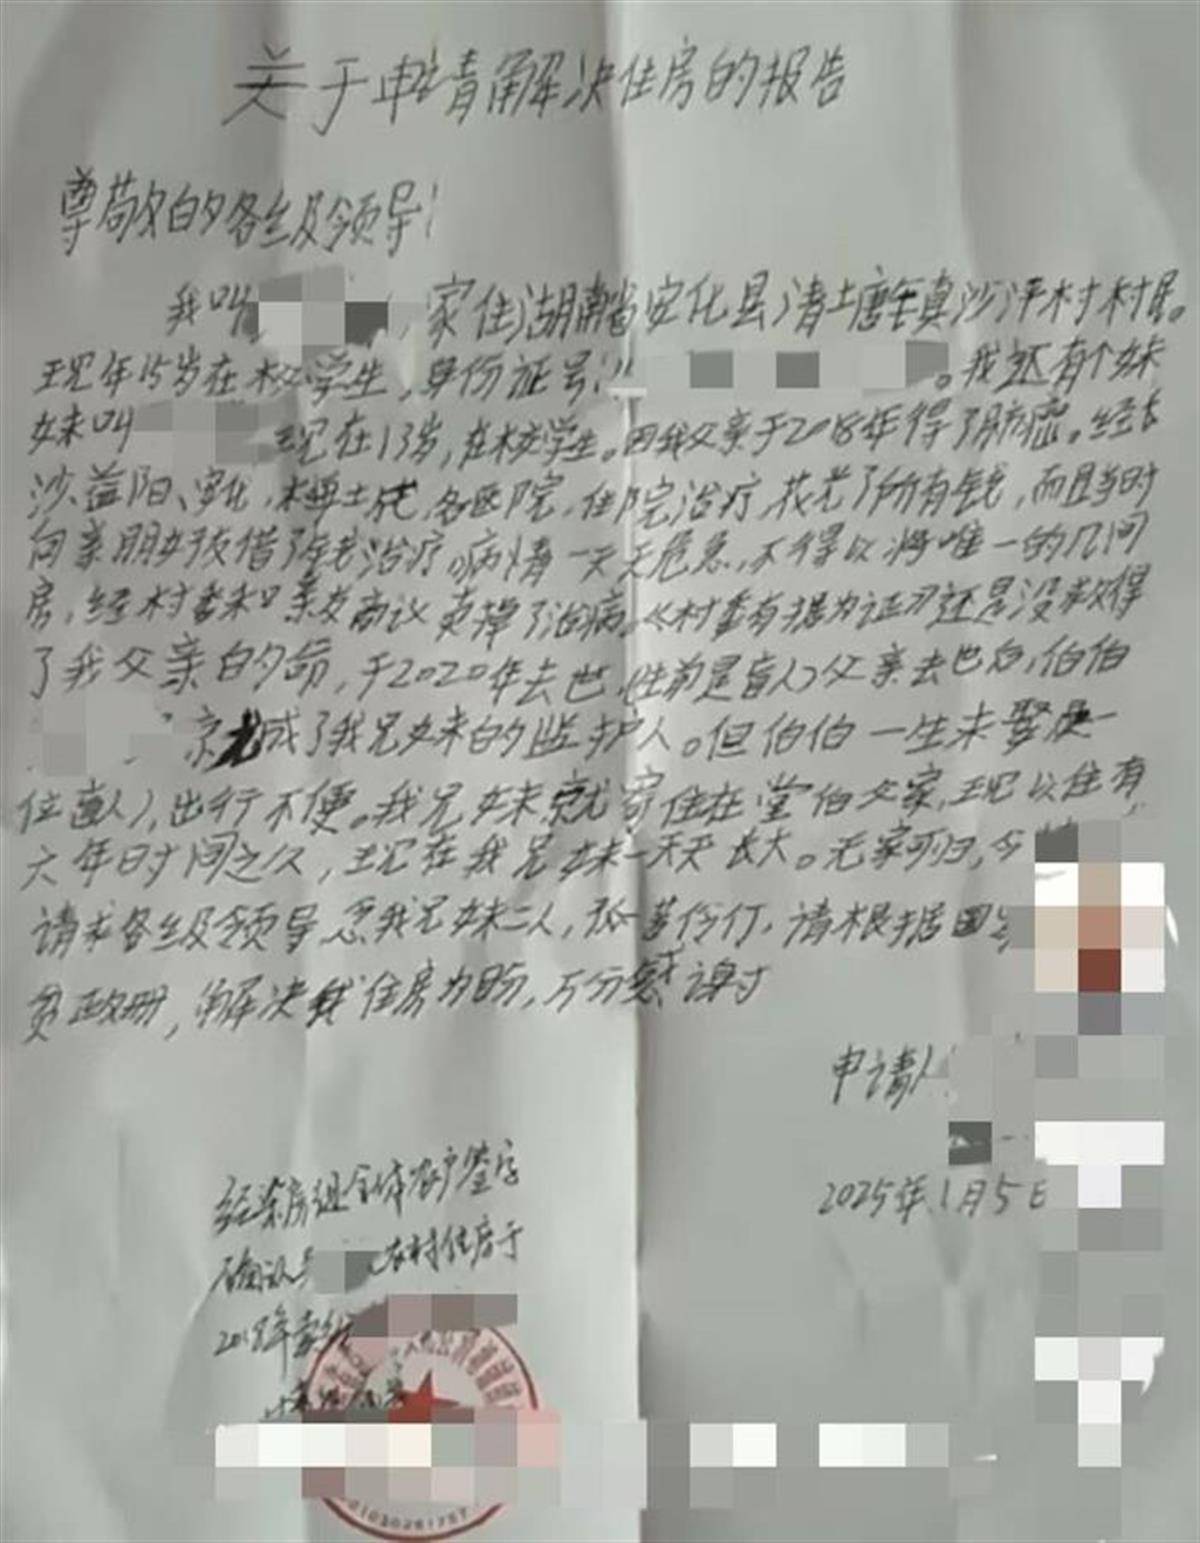 关于申请解决住房的报告
尊敬的各级领导!
我叫 ,家住湖南省安化县清塘镇真沙坪村村民。
现年15岁在校学生,身份证号: 。我还有个妹
妹叫 现在13岁,在校学生。因我父亲于2018年得了肺癌。经长
沙、益阳、安化, 各医院,住院治疗,花光了所有钱,而且当时
向亲朋好友借了钱去治疗。病情一天天危急,不得以将唯一的几间
房,经村委和亲友商议卖掉了治病。《村委有据为证》还是没救得
了我父亲的命,于2020年去世,(生前是盲人)父亲去世后,伯伯
成了我兄妹的监护人。但伯伯一生未娶
位盲人),出行不便。我兄妹就寄住在堂伯父家,现以住有
六年时间之久,现在我兄妹一天天长大。无家可归,今
请求各级领导,念我兄妹二人,孤苦伶仃,请根据国
贫政册,解决我住房为盼,万分感谢!
申请人
2025年1月5日
经 房组全体农户签字
确认 农村住房于
2018年卖给